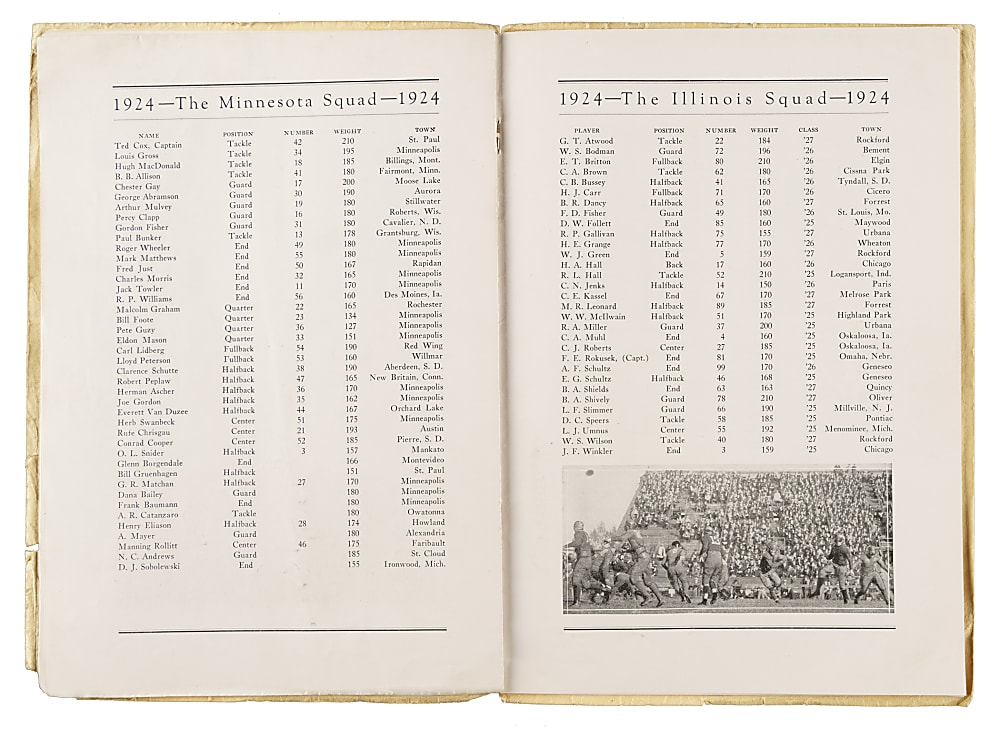 1924—The Minnesota Squad—1924
NAME POSITION NUMBER WEIGHT TOWN
Ted Cox, Captain Tackle 42 210 St. Paul
Louis Gross Tackle 34 195 Minneapolis
Hugh MacDonald Tackle 18 185 Billings, Mont.
B. B. Allison Tackle 41 180 Fairmont, Minn.
Chester Gay Guard 17 200 Moose Lake
George Abramson Guard 30 190 Aurora
Arthur Mulvey Guard 19 180 Stillwater
Percy Clapp Guard 16 180 Roberts, Wis.
Gordon Fisher Guard 31 180 Cavalier, N. D.
Paul Bunker Tackle 13 178 Grantsburg, Wis.
Roger Wheeler End 49 180 Minneapolis
Mark Matthews End 55 180 Minneapolis
Fred Just End 50 167 Rapidan
Charles Morris End 32 165 Minneapolis
Jack Towler End 11 170 Minneapolis
R. P. Williams End 56 160 Des Moines, Ia.
Malcolm Graham Quarter 22 165 Rochester
Bill Foote Quarter 23 134 Minneapolis
Pete Guzy Quarter 36 127 Minneapolis
Eldon Mason Quarter 33 151 Minneapolis
Carl Lidberg Fullback 54 190 Red Wing
Lloyd Peterson Fullback 53 160 Willmar
Clarence Schutte Halfback 38 190 Aberdeen, S. D.
Robert Peplaw Halfback 47 165 New Britain, Conn.
Herman Ascher Halfback 36 170 Minneapolis
Joe Gordon Halfback 35 162 Minneapolis
Everett Van Duzee Halfback 44 167 Orchard Lake
Herb Swanbeck Center 51 175 Minneapolis
Rufe Chrisgau Center 21 193 Austin
Conrad Cooper Center 52 185 Pierre, S. D.
O. L. Snider Halfback 3 157 Mankato
Glenn Borgendale End 166 Montevideo
Bill Gruenhagen Halfback 151 St. Paul
G. R. Matchan Halfback 27 170 Minneapolis
Dana Bailey Guard 180 Minneapolis
Frank Baumann End 180 Minneapolis
A. R. Catanzaro Tackle 180 Owatonna
Henry Eliason Halfback 28 174 Howland
A. Mayer Guard 180 Alexandria
Manning Rollitt Center 46 175 Faribault
N. C. Andrews Guard 185 St. Cloud
D. J. Sobolewski End 155 Ironwood, Mich.
1924—The Illinois Squad—1924
PLAYER POSITION NUMBER WEIGHT CLASS TOWN
G. T. Atwood Tackle 22 184 '27 Rockford
W. S. Bodman Guard 72 196 '26 Bement
E. T. Britton Fullback 80 210 '26 Elgin
C. A. Brown Tackle 62 180 '26 Cissna Park
C. B. Bussey Halfback 41 165 '26 Tyndall, S. D.
H. J. Carr Fullback 71 170 '26 Cicero
B. R. Dancy Halfback 65 160 '27 Forrest
F. D. Fisher Guard 49 180 '26 St. Louis, Mo.
D. W. Follett End 85 160 '25 Maywood
R. P. Gallivan Halfback 75 155 '27 Urbana
H. E. Grange Halfback 77 170 '26 Wheaton
W. J. Green End 5 159 '27 Rockford
H. A. Hall Back 17 160 '26 Chicago
R. L. Hall Tackle 52 210 '25 Logansport, Ind.
C. N. Jenks Halfback 14 150 '26 Paris
C. E. Kassel End 67 170 '27 Melrose Park
M. R. Leonard Halfback 89 185 '27 Forrest
W. W. McIlwain Halfback 51 170 '25 Highland Park
R. A. Miller Guard 37 200 '25 Urbana
C. A. Muhl End 4 160 '25 Oskaloosa, Ia.
C. J. Roberts Center 27 185 '25 Oskaloosa, Ia.
F. E. Rokusek, (Capt.) End 81 170 '25 Omaha, Nebr.
A. F. Schultz End 99 170 '26 Geneseo
E. G. Schultz Halfback 46 168 '25 Geneseo
B. A. Shields End 63 163 '27 Quincy
B. A. Shively Guard 78 210 '27 Oliver
L. F. Slimmer Guard 66 190 '25 Millville, N. J.
D. C. Speers Tackle 58 185 '25 Pontiac
L. J. Umnus Center 55 192 '25 Menominee, Mich.
W. S. Wilson Tackle 40 180 '27 Rockford
J. F. Winkler End 3 159 '25 Chicago